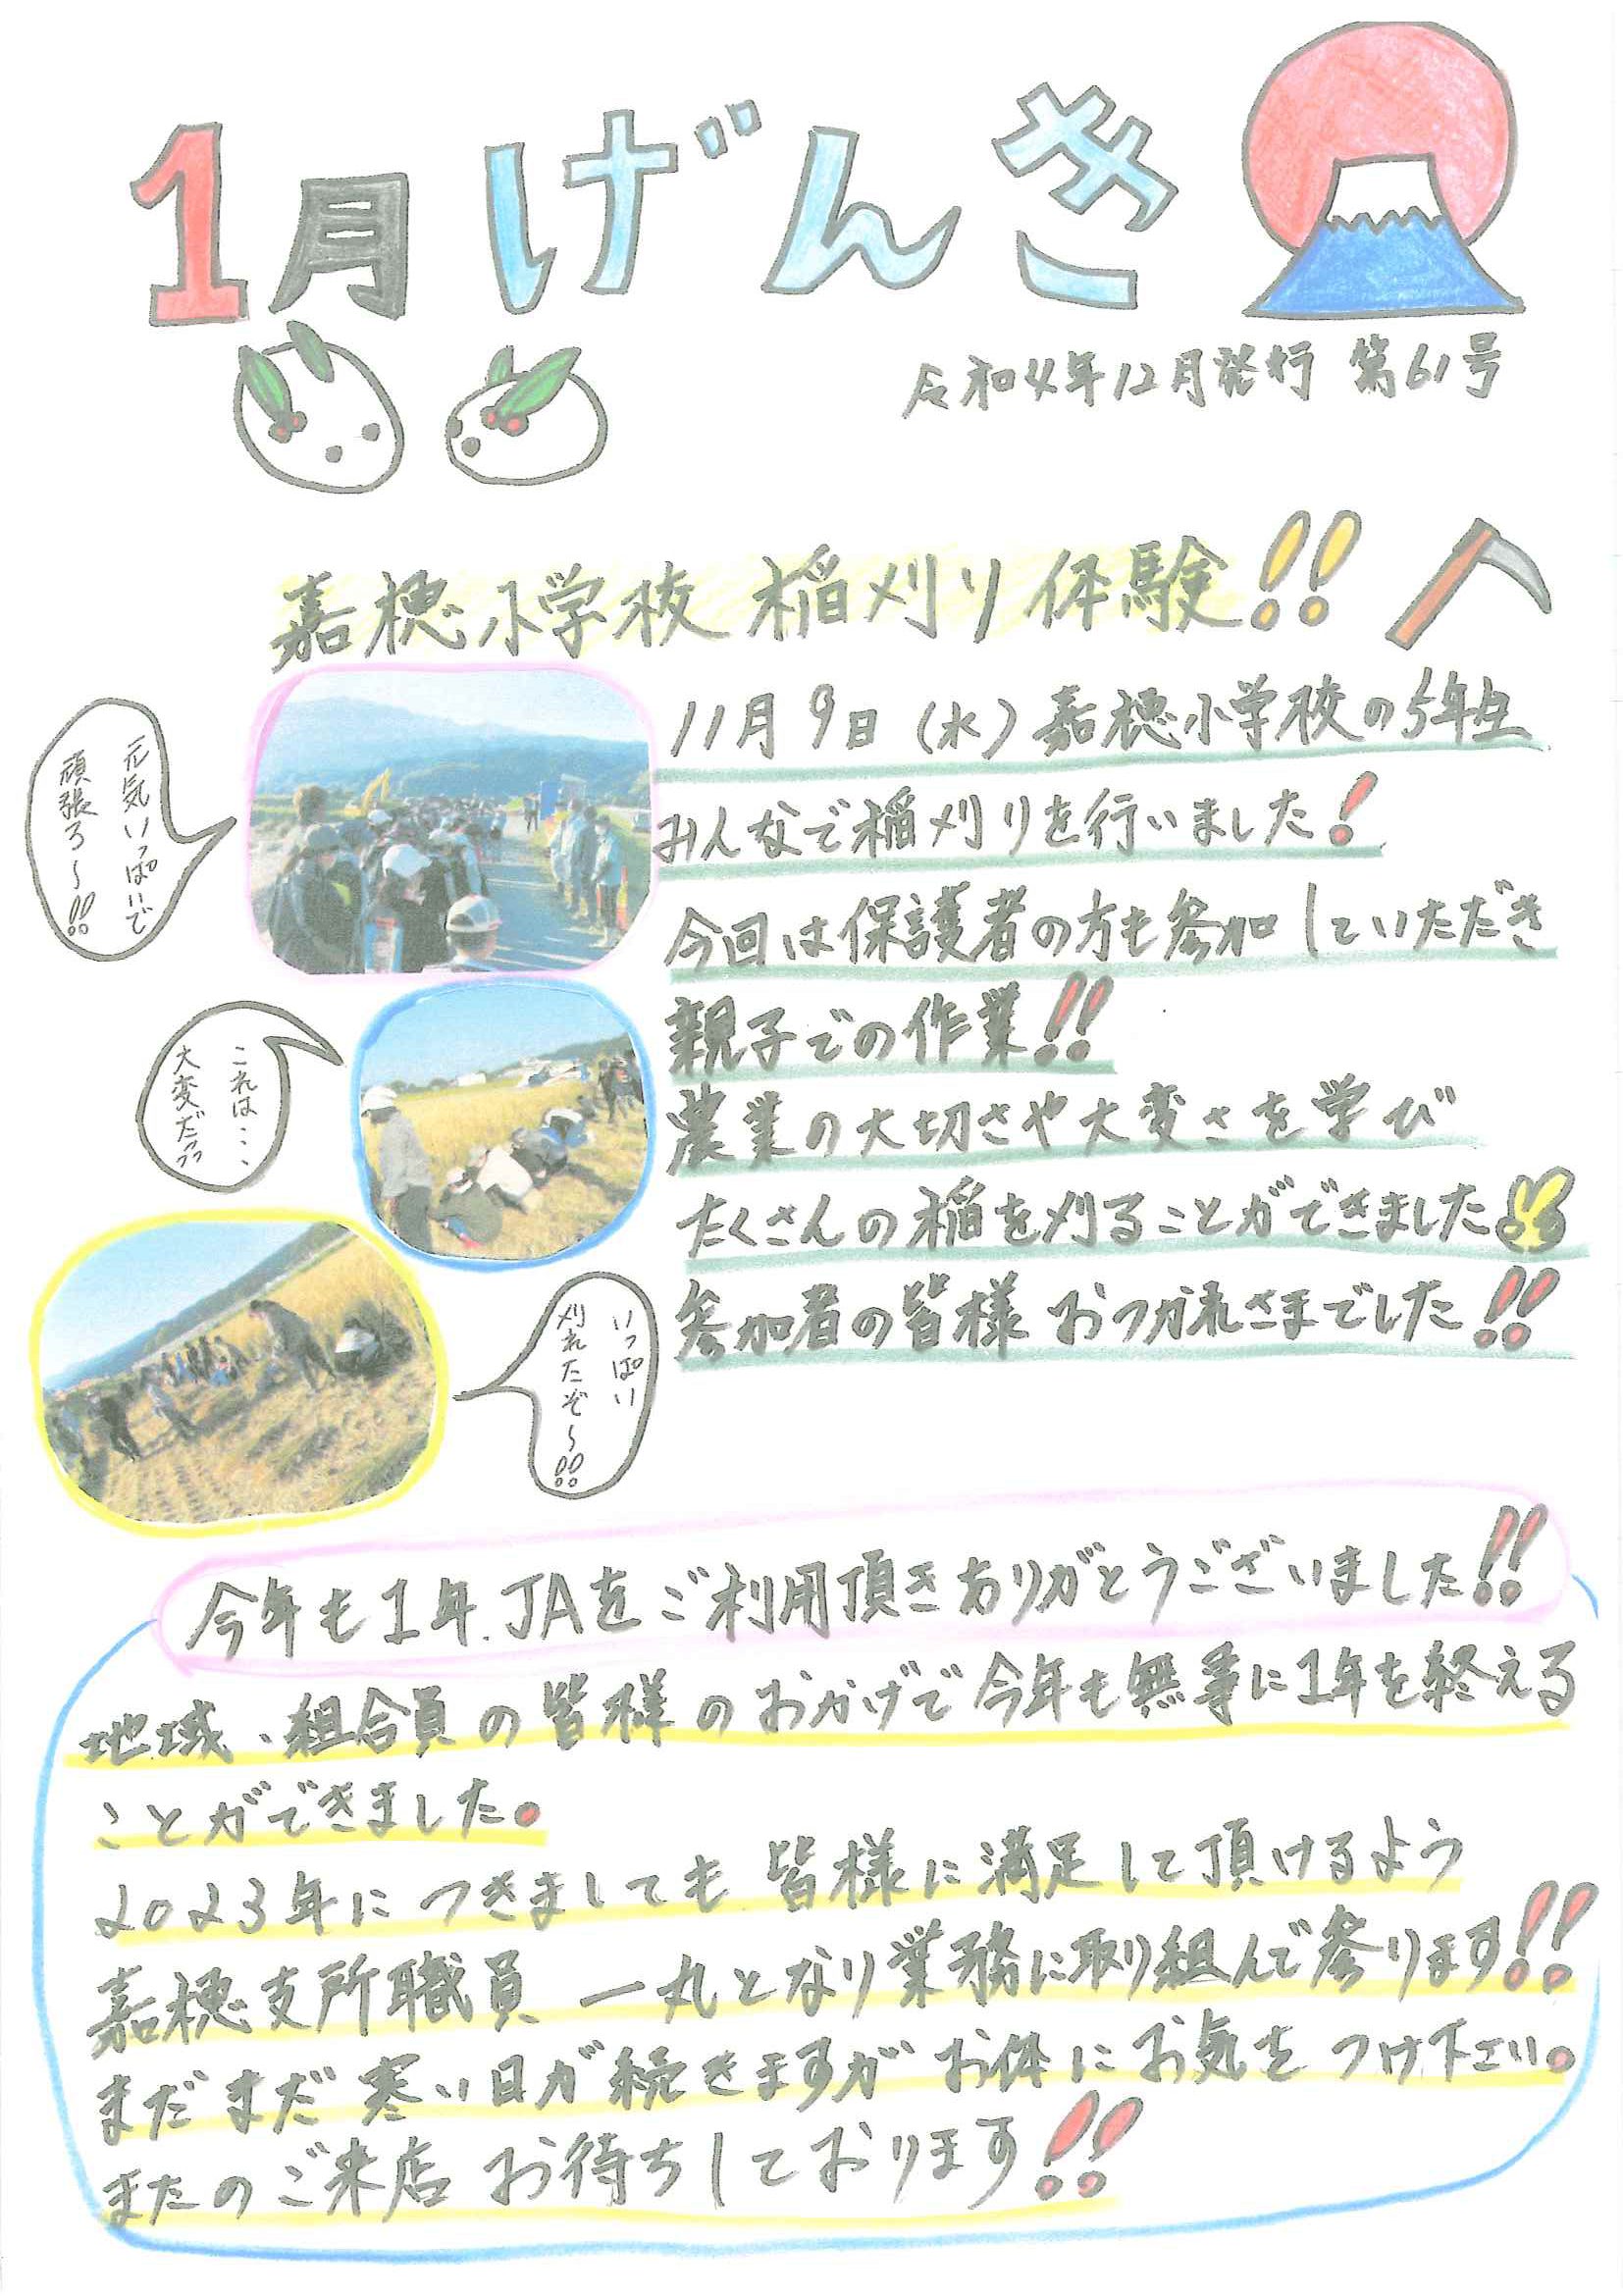 1月 げんき
令和4年12月発行 第61号
嘉穂小学校 稲刈り体験!!
元気いっぱいで
頑張ろ〜!!
11月9日(水)嘉穂小学校の5年生
みんなで稲刈りを行いました!
今回は保護者の方も参加していただき
親子での作業!!
これは…、
大変だっ
農業の大切さや大変さを学び
たくさんの稲を刈ることができました
参加者の皆様 おつかれさまでした!!
いっぱい
刈れたぞ〜!!
今年も1年、JAをご利用頂きありがとうございました!!
地域、組合員の皆様のおかげで今年も無事に1年を終える
ことができました。
2023年につきましても皆様に満足して頂けるよう
嘉穂支所職員 一丸となり業務に取り組んで参ります!!
まだまだ寒い日が続きますがお体にお気をつけ下さい。
またのご来店お待ちしております!!